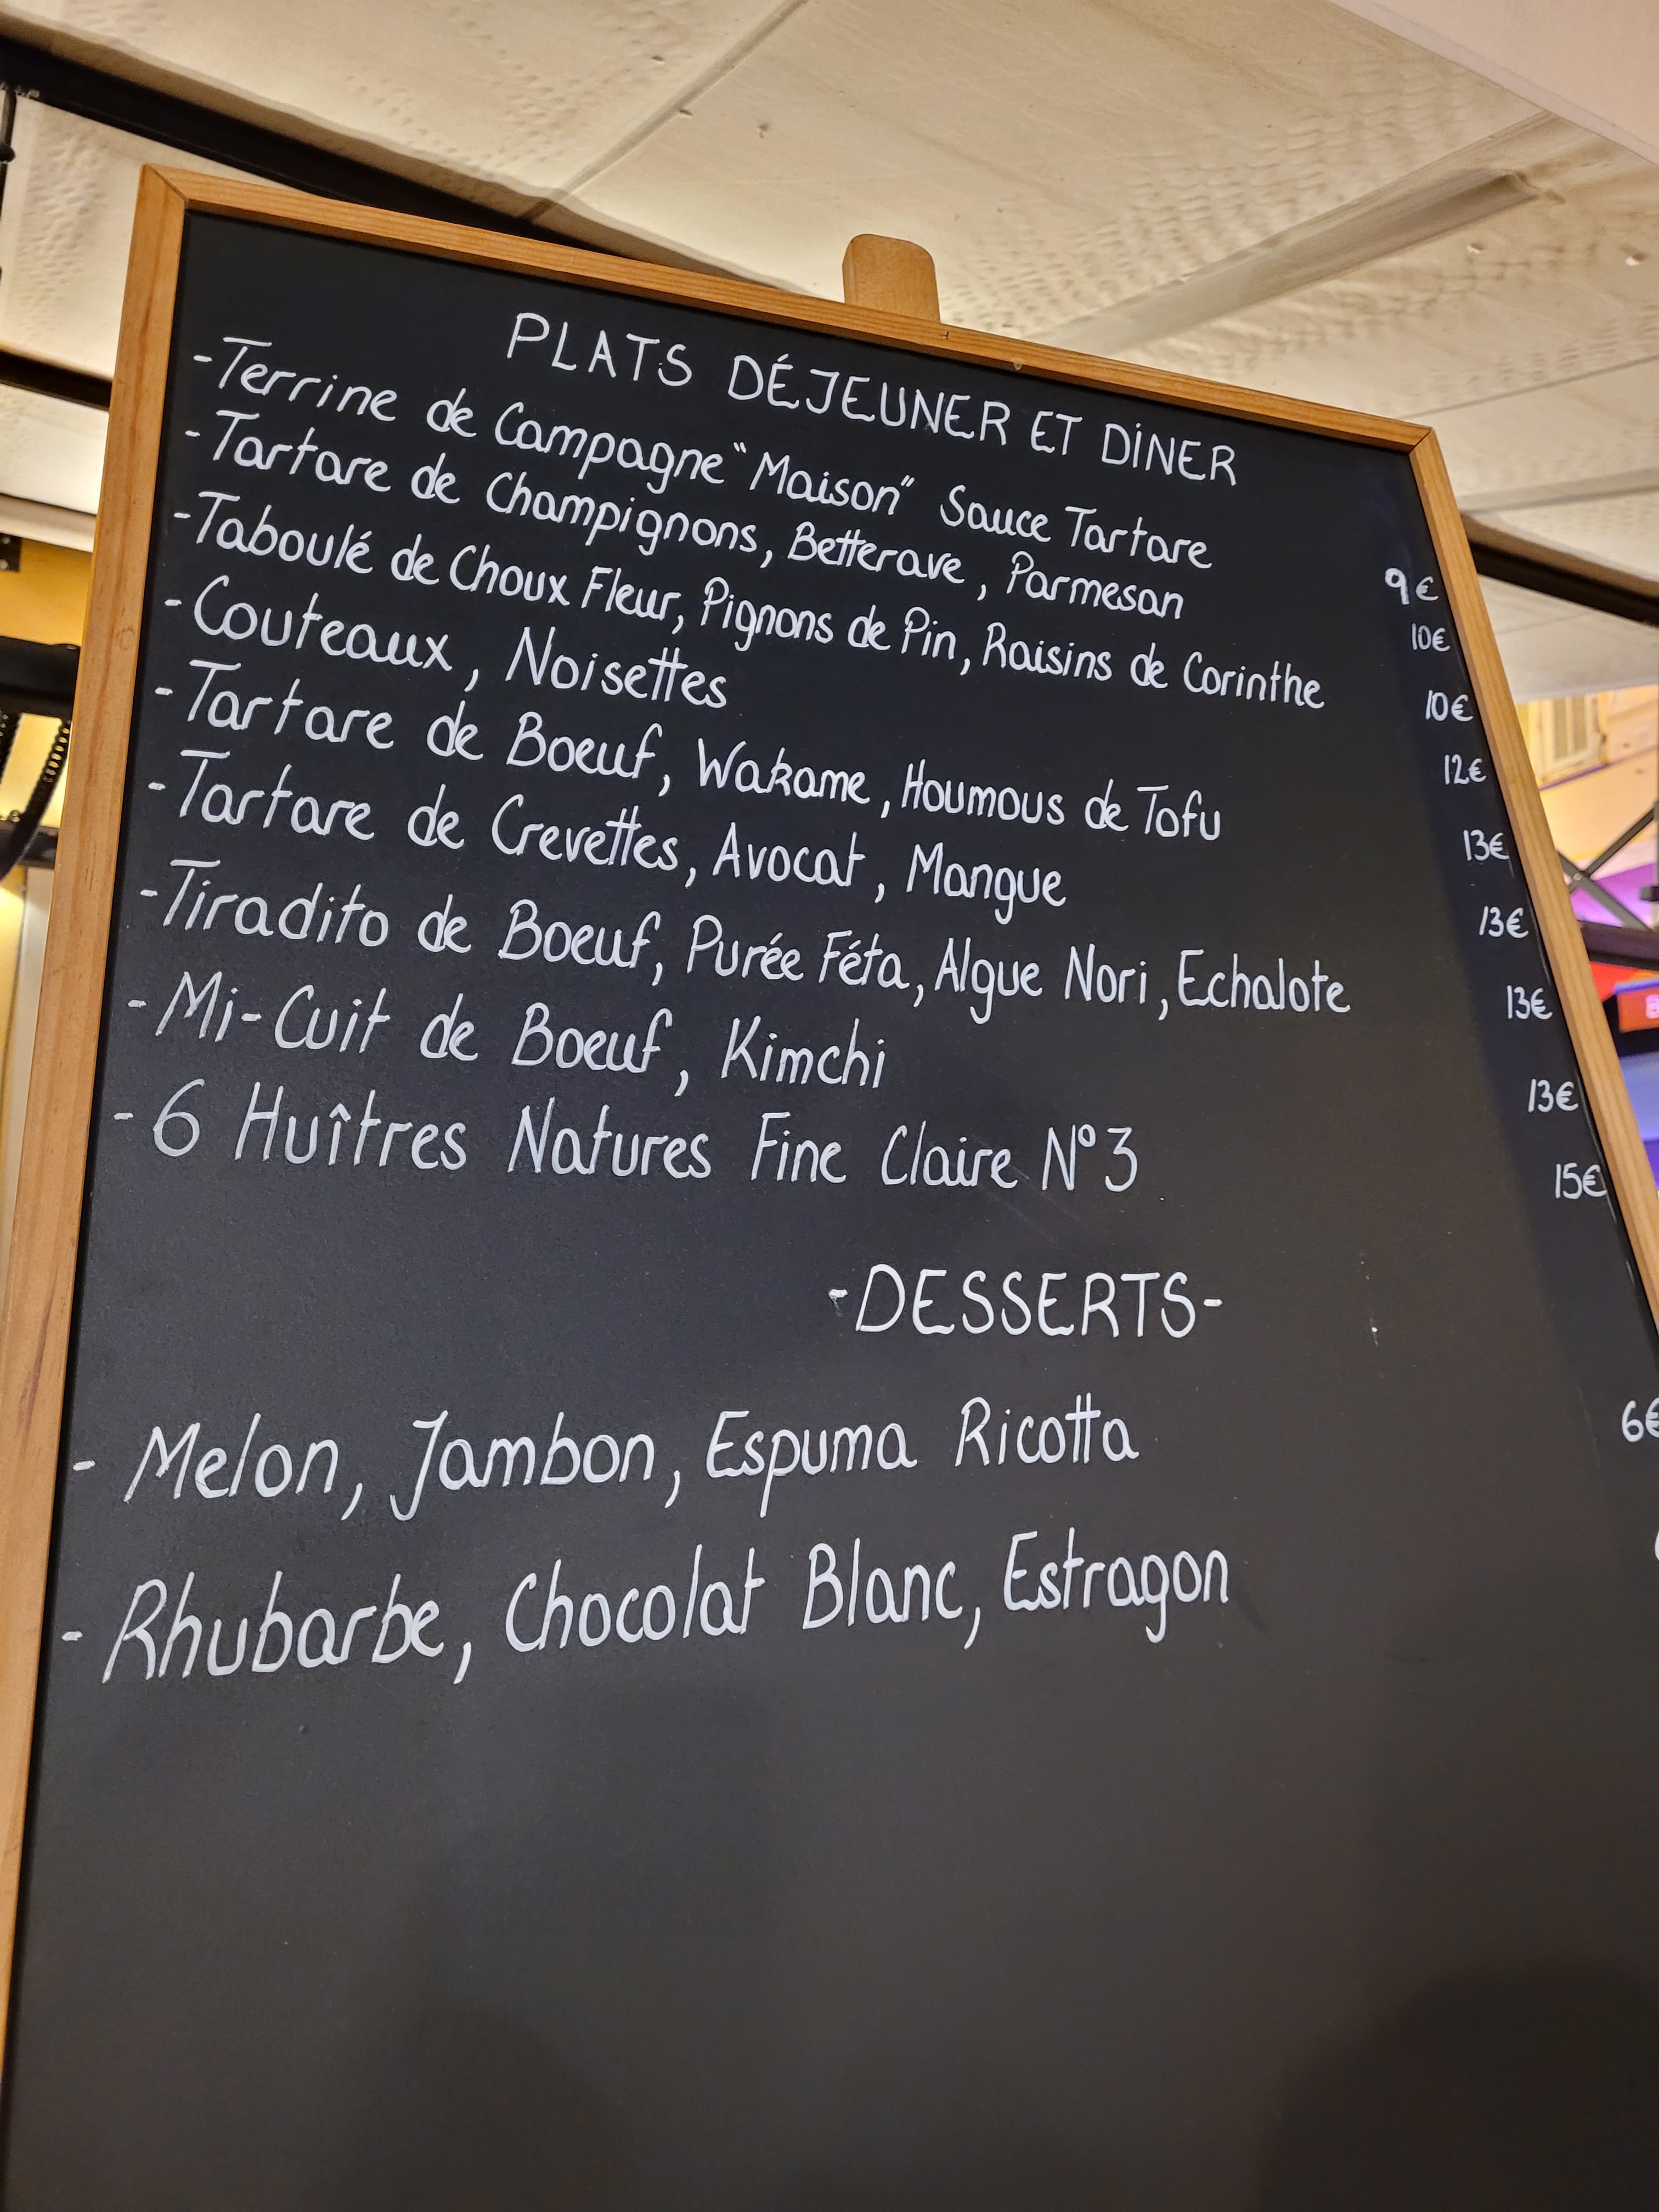 PLATS DÉJEUNER ET DINER
-Terrine de Campagne "Maison" Sauce Tartare 9€
-Tartare de Champignons, Betterave, Parmesan 10€
-Taboulé de Choux Fleur, Pignons de Pin, Raisins de Corinthe 10€
-Couteaux, Noisettes 12€
-Tartare de Boeuf, Wakame, Houmous de Tofu 13€
-Tartare de Crevettes, Avocat, Mangue 13€
-Tiradito de Boeuf, Purée Féta, Algue Nori, Echalote 13€
-Mi-Cuit de Boeuf, Kimchi 13€
-6 Huîtres Natures Fine Claire N°3 15€
-DESSERTS-
- Melon, Jambon, Espuma Ricotta 6€
- Rhubarbe, Chocolat Blanc, Estragon